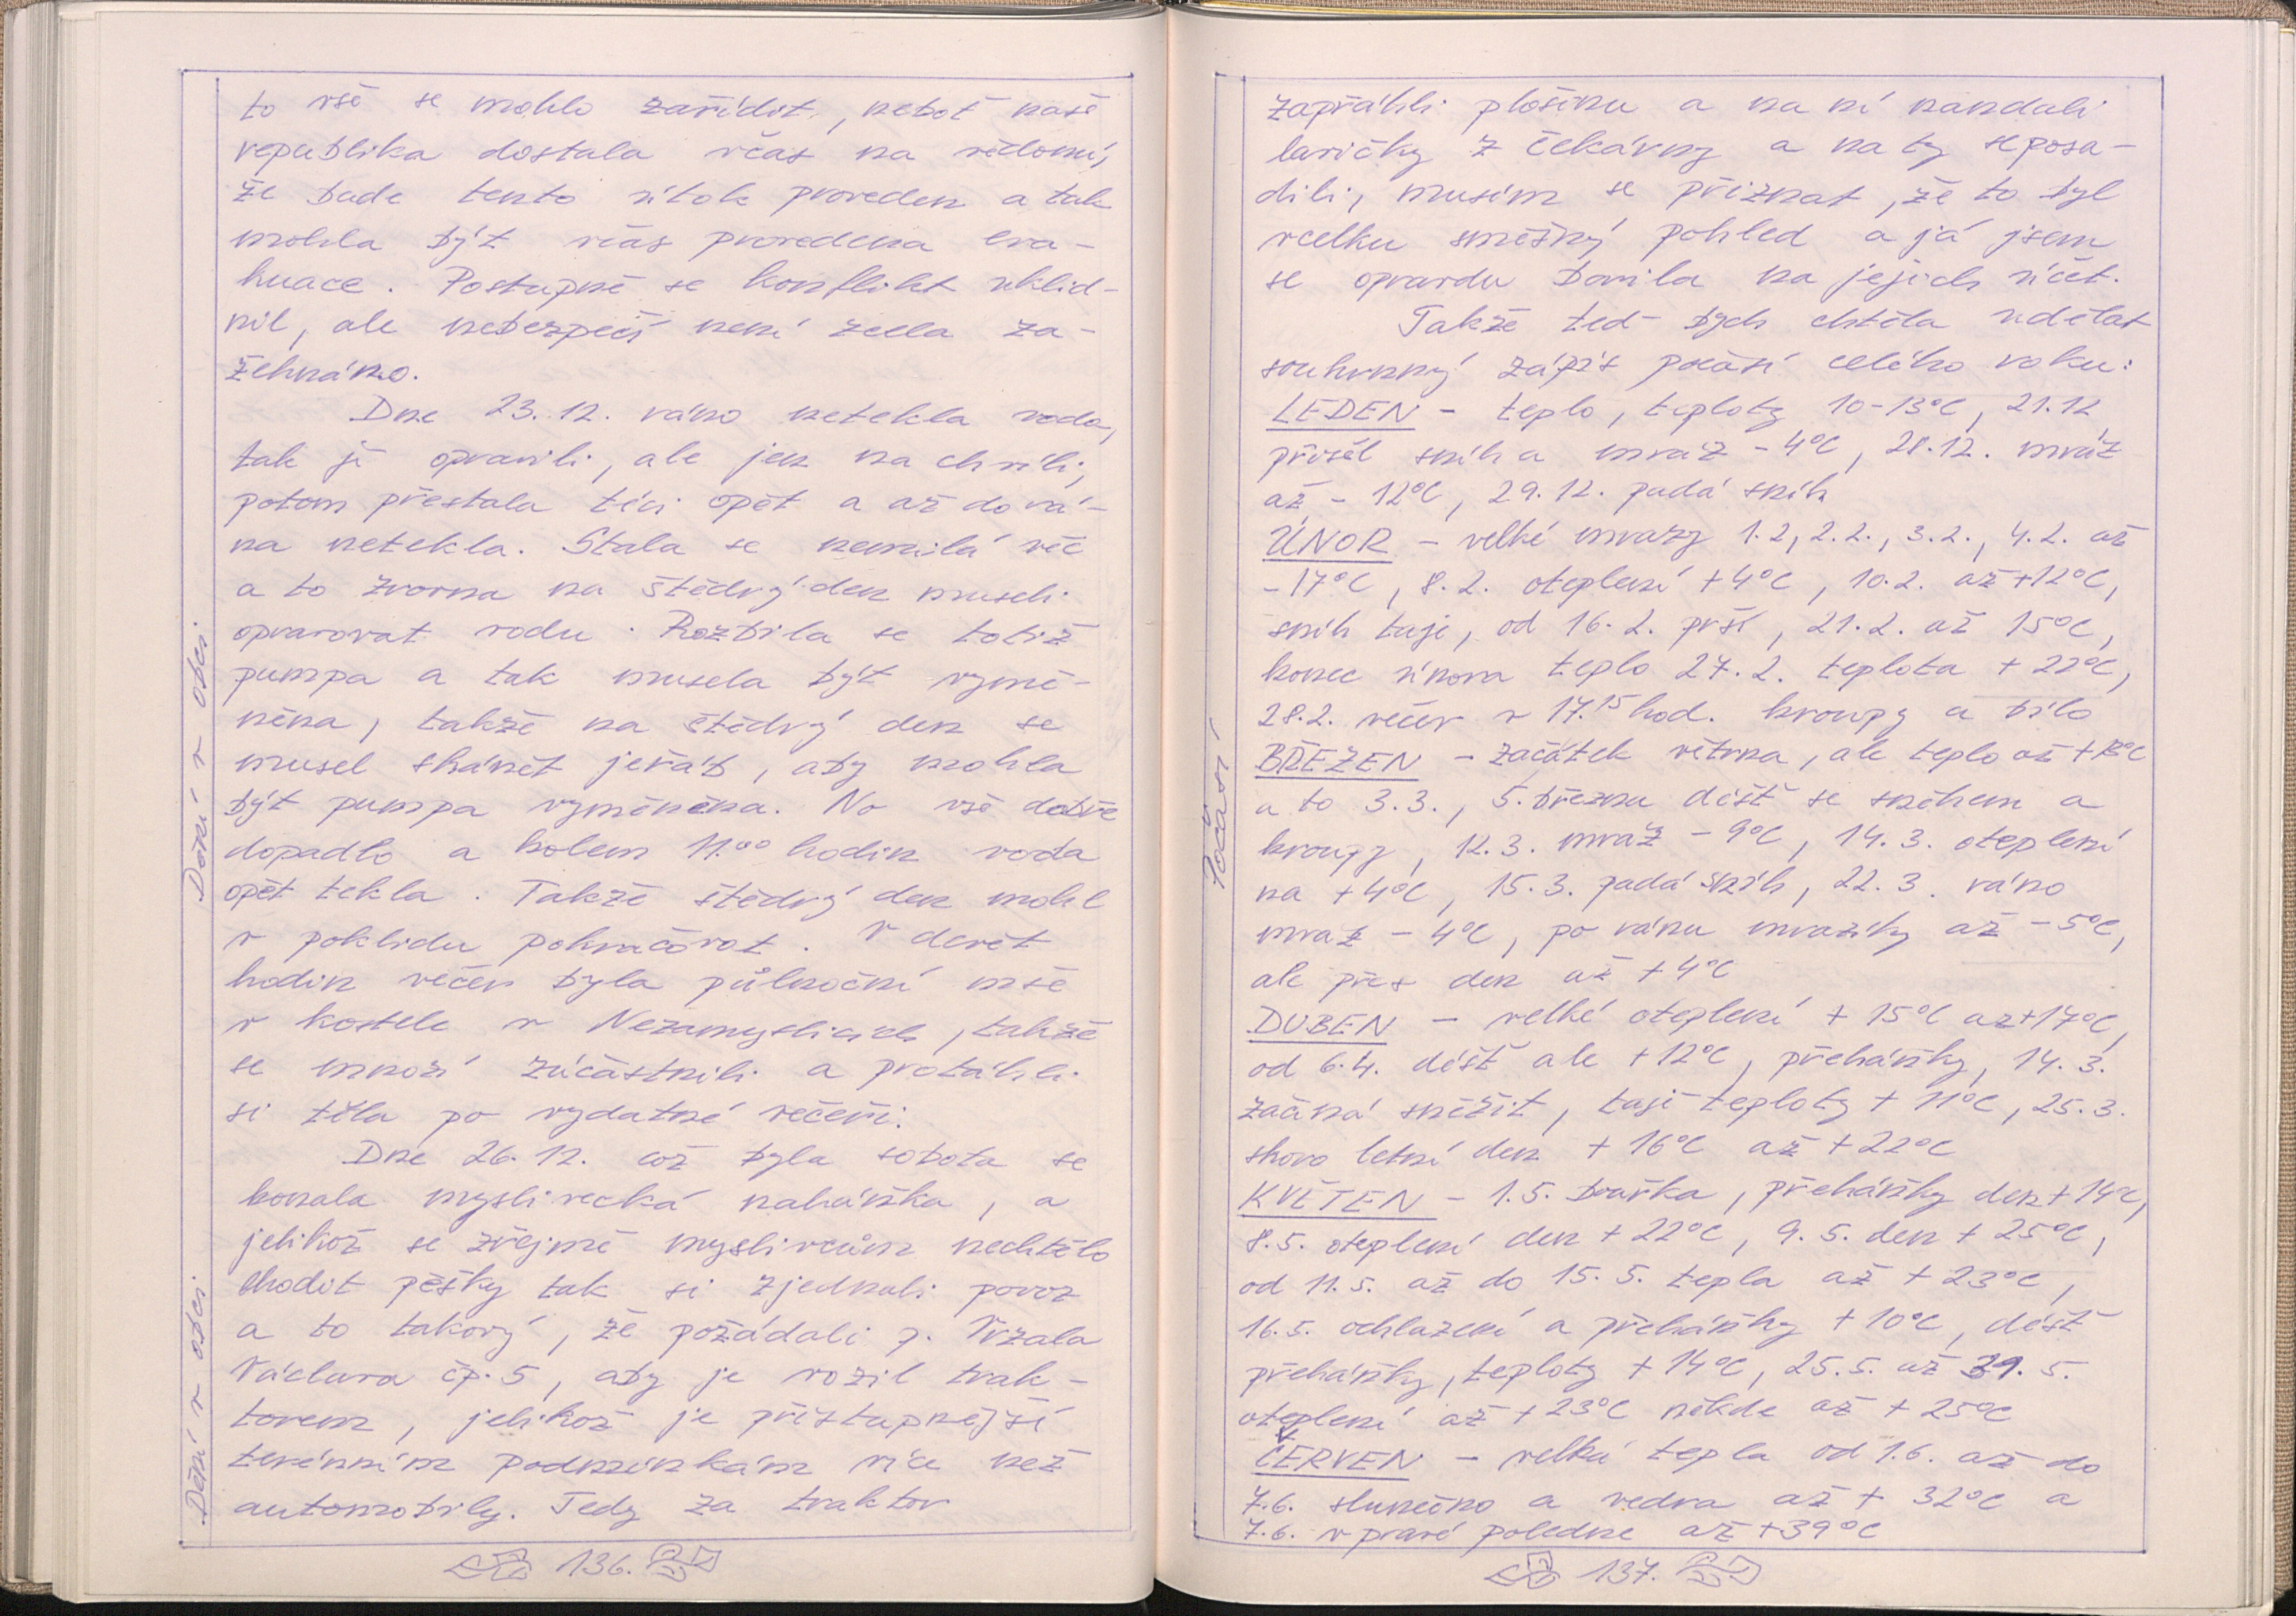 to vše se mohlo zařídit, neboť naše
republika dostala včas na vědomí,
že bude tento útok proveden a tak
mohla být včas provedena eva-
kuace. Postupně se konflikt uklid-
nil, ale nebezpečí není zcela za-
žehnáno.
Dne 23.12. ráno netekla voda,
tak ji opravili, ale jen na chvíli,
potom přestala téci opět a až do rá-
na netekla. Stala se nemilá věc
a to zrovna na štědrý den museli
opravovat vodu. Rozbila se totiž
pumpa a tak musela být vymě-
něna, takže na štědrý den se
musel shánět jeřáb, aby mohla
být pumpa vyměněna. No vše dobře
dopadlo a kolem 11.00 hodin voda
opět tekla. Takže štědrý den mohl
v poklidu pokračovat. V devět
hodin večer byla půlnoční mše
v kostele v Nezamyslicích, takže
se mnozí zúčastnili a protáhli
si těla po vydatné večeři.
Dne 26.12. což byla sobota se
konala myslivecká naháňka, a
jelikož se zřejmě myslivcům nechtělo
chodit pěšky tak si zjednali povoz
a to takový, že požádali p. Vrzala
Václava čp. 5, aby je vozil trak-
torem, jelikož je přístupnější
terénním podmínkám více než
automobily. Tedy za traktor
Dění v obci
Dění v obci
136.
zapřáhli plošinu a na ní nandali
lavičky z čekárny a na ty se posa-
dili, musím se přiznat, že to byl
vcelku směšný pohled a já jsem
se opravdu bavila na jejich účet.
Takže teď bych chtěla udělat
souhrnný zápis počasí celého roku:
LEDEN - teplo, teploty 10-13°C, 21.12.
přišel sníh a mráz -4°C, 28.12. mráz
až -12°C, 29.12. padá sníh
ÚNOR - velké mrazy 1.2, 2.2., 3.2., 4.2. až
-17°C, 8.2. oteplení +4°C, 10.2. až +12°C,
sníh taje, od 16.2. prší, 21.2. až 15°C,
konec února teplo 27.2. teplota +22°C,
28.2. večer v 17.15 hod. kroupy a bílo
BŘEZEN - začátek větrna, ale teplo až
a to 3.3., 5. března déšť se sněhem a
kroupy, 12.3. mráz -9°C, 14.3. oteplení
na +4°C, 15.3. padá sníh, 22.3. ráno
mráz -4°C, po ránu mrazíky až -5°C,
ale přes den až +4°C
DUBEN - velké oteplení +15°C až +17°C,
od 6.4. déšť ale +12°C, přeháňky, 14.3.
začíná sněžit, taje teploty +11°C, 25.3.
skoro letní den +16°C až +22°C
KVĚTEN - 1.5. bouřka, přeháňky den +14°C,
8.5. oteplení den +22°C, 9.5. den +25°C,
od 11.5. až do 15.5. tepla až +23°C,
16.5. ochlazení a přeháňky +10°C, déšť
přeháňky, teploty +14°C, 25.5. až 31.5.
oteplení až +23°C někde až +25°C
ČERVEN - velká tepla od 1.6. až do
7.6. slunečno a vedra až +32°C a
7.6. v pravé poledne až +39°C
Počasí
137.